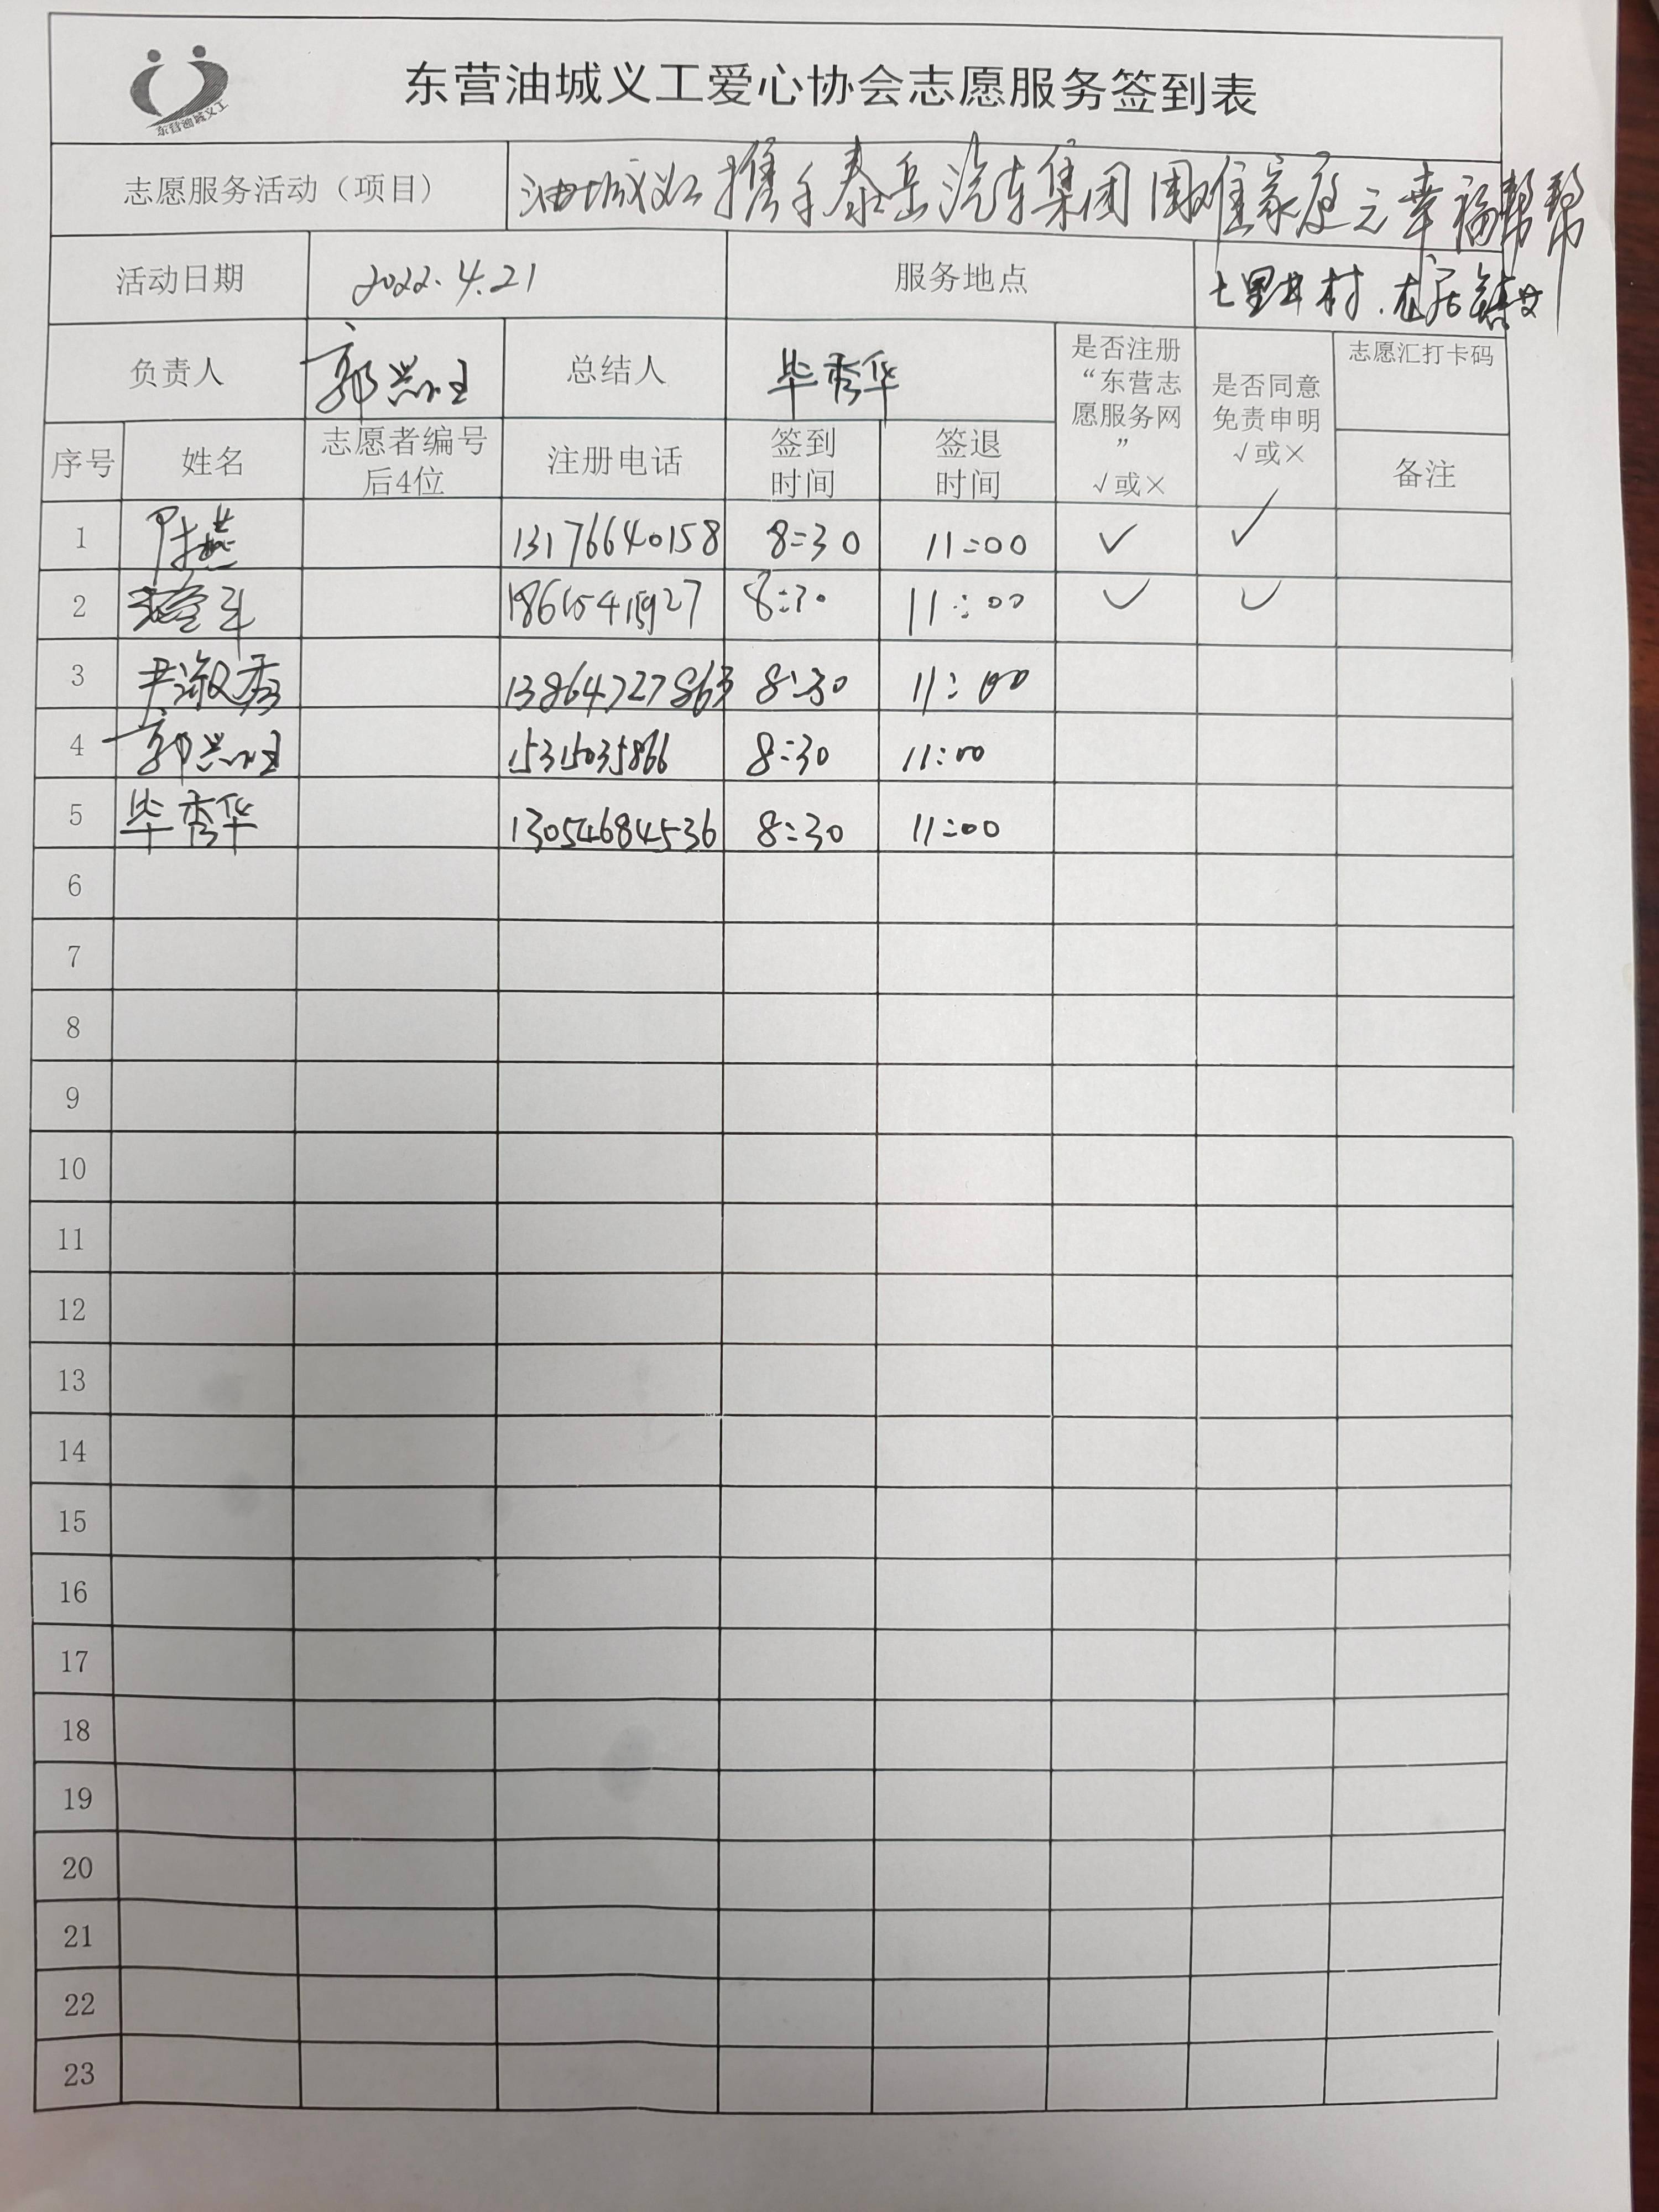 东营油城义工
东营油城义工爱心协会志愿服务签到表
志愿服务活动（项目） 油城义工携手泰岳汽车集团困难家庭元幸福帮帮
活动日期 2022.4.21 服务地点 七里井村.
负责人 郭兴旺 总结人 毕秀华 是否注册“东营志愿服务网” √或× 是否同意免责申明 √或× 志愿汇打卡码
序号 姓名 志愿者编号后4位 注册电话 签到时间 签退时间 备注
1 13176640158 8:30 11:00 ✓ ✓
2 8:30 11:00 ✓ ✓
3 尹淑秀 13864727863 8:30 11:00
4 郭兴旺 15315035866 8:30 11:00
5 毕秀华 13054684536 8:30 11:00
6
7
8
9
10
11
12
13
14
15
16
17
18
19
20
21
22
23